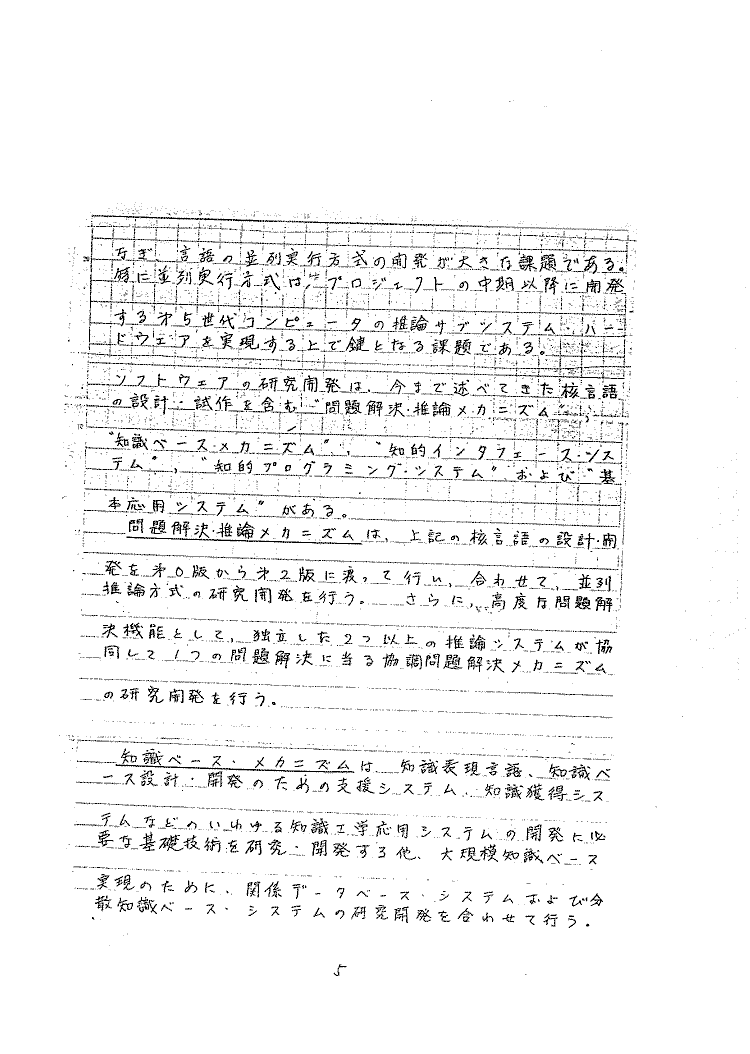 なぎ、言語の並列実行方式の開発が大きな課題である。
特に並列実行方式は、プロジェクトの中期以降に開発
する才5世代コンピュータの推論サブシステム・ハー
ドウェアを実現する上で鍵となる課題である。
ソフトウェアの研究開発は、今まで述べてきた核言語
の設計・試作を含む"問題解決・推論メカニズム"、
"知識ベース・メカニズム"、"知的インタフェース・シス
テム"、"知的プログラミング・システム"および"基
本応用システム"がある。
問題解決・推論メカニズムは、上記の核言語の設計・開
発を才0版から才2版に渡って行い、合わせて、並列
推論方式の研究開発を行う。さらに、高度な問題解
決機能として、独立した2つ以上の推論システムが協
同して1つの問題解決に当る協調問題解決メカニズム
の研究開発を行う。
知識ベース・メカニズムは、知識表現言語、知識ベ
ース設計・開発のための支援システム、知識獲得シス
テムなどのいわゆる知識工学応用システムの開発に必
要な基礎技術を研究・開発する他、大規模知識ベース
実現のために、関係データベース・システムおよび分
散知識ベース・システムの研究開発を合わせて行う。
5